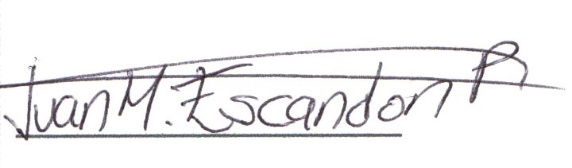 Juan M. Escandon R